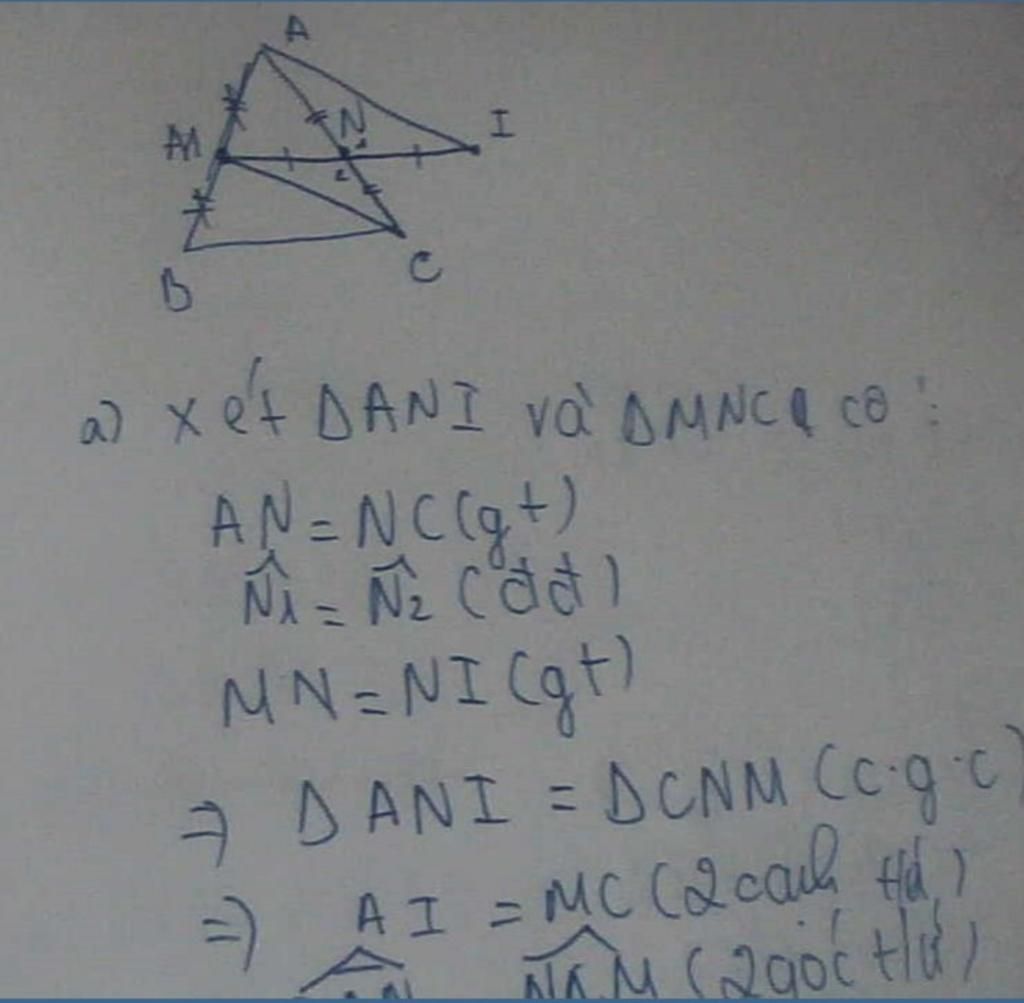 A
M
N
I
1
2
B
C
a) Xét ΔANI và ΔMNC có :
AN = NC (gt)
N̂1 = N̂2 (đđ)
MN = NI (gt)
=> ΔANI = ΔCNM (c.g.c)
=> AI = MC (2 cạnh t/ứ)
(2 góc t/ứ)